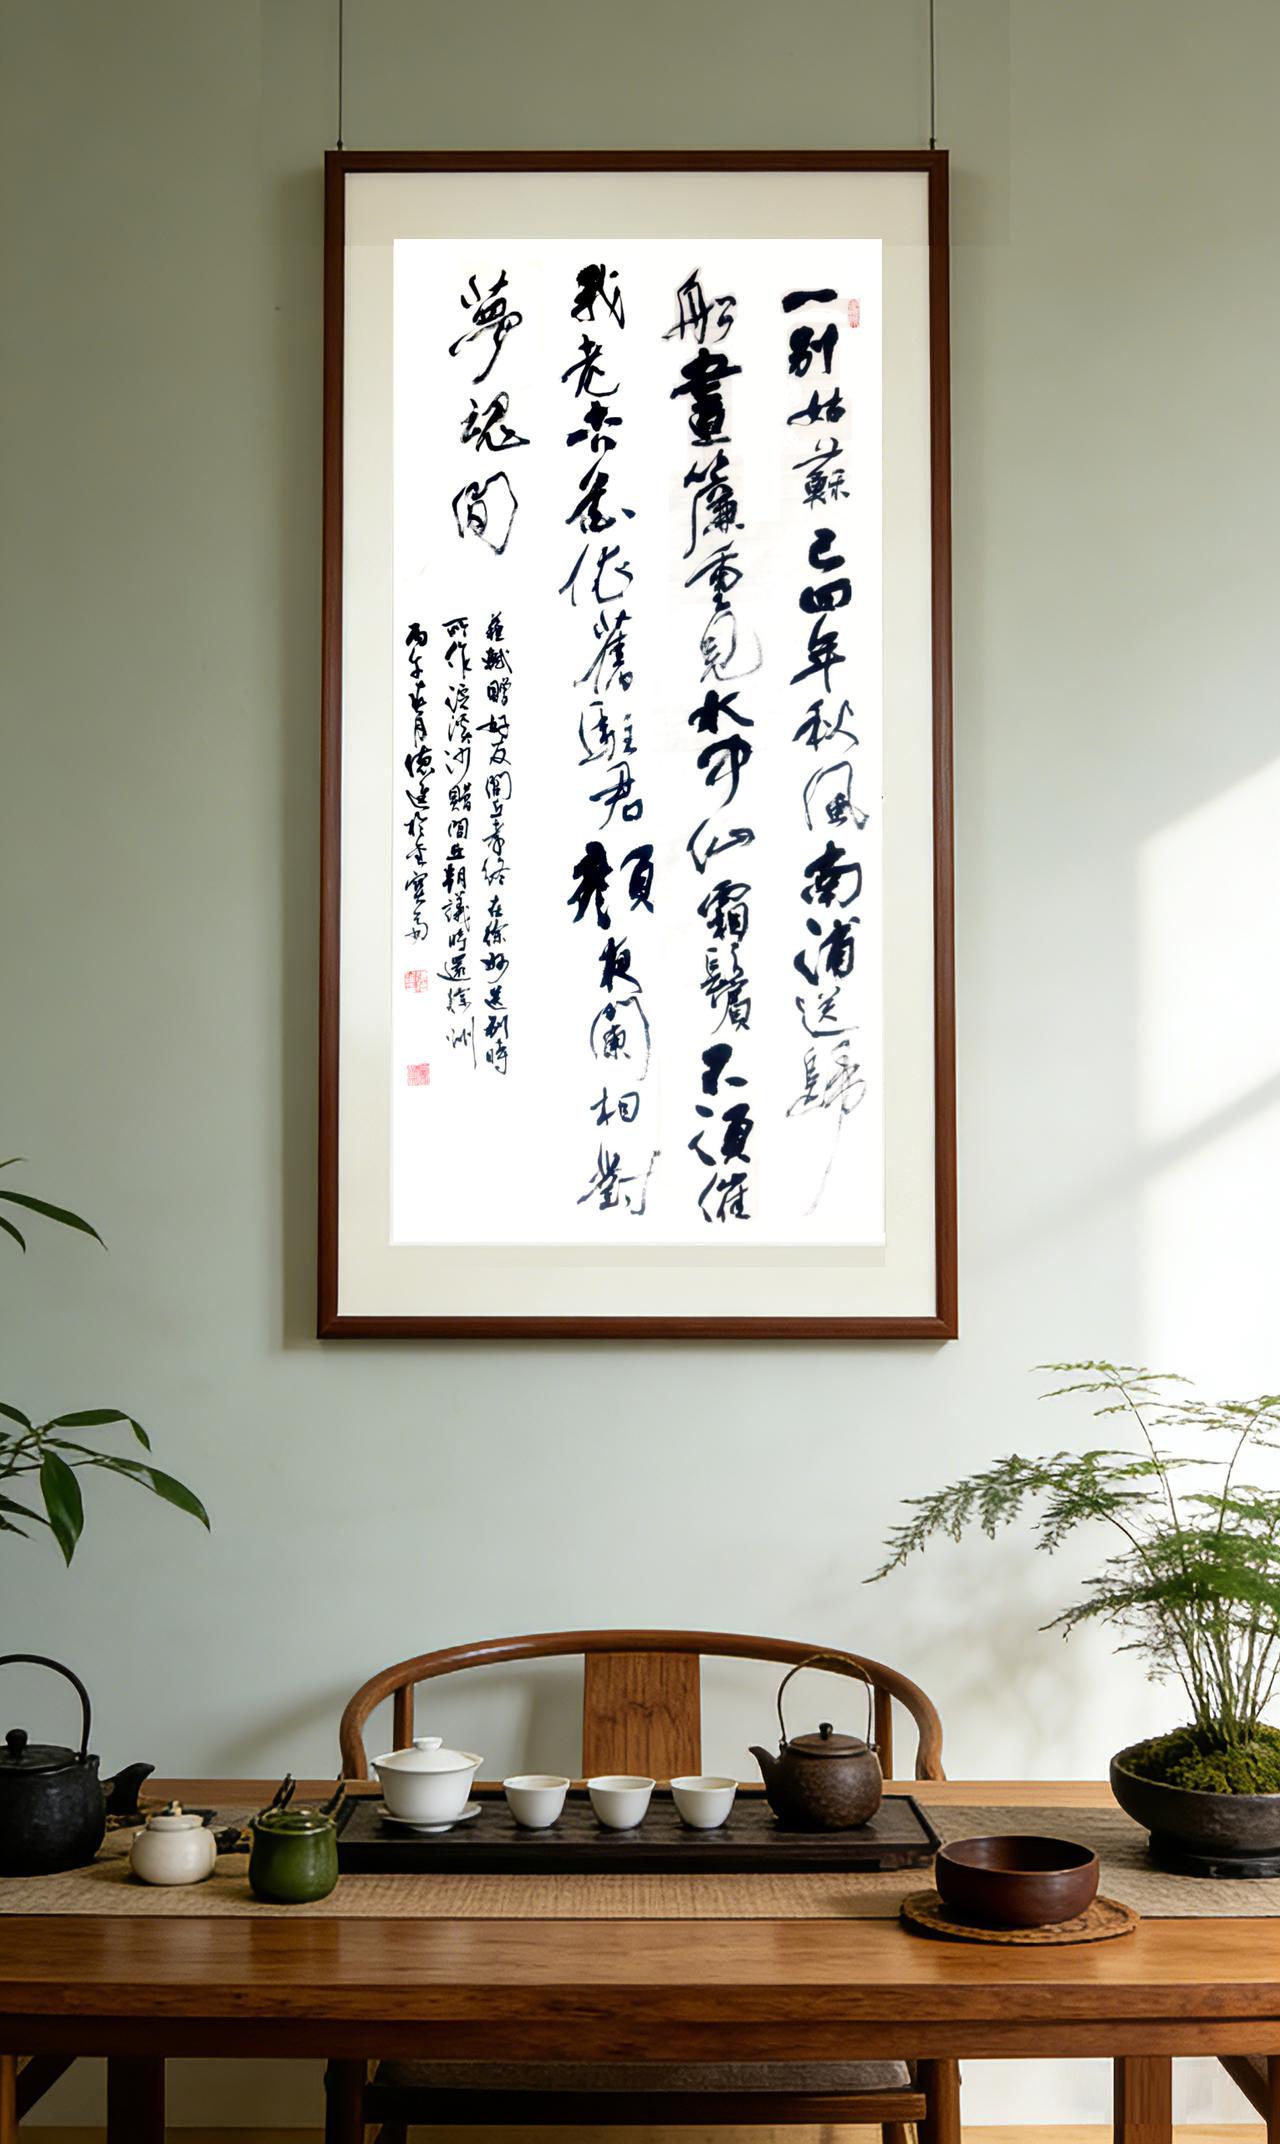 一别姑蘇已四年秋風南浦送歸
船畫簾重見水中仙霜鬢不須催
我老杏花依舊駐君顏夜闌相對
夢魂間
蘇軾贈好友閭丘孝終在徐州送别時
所作浣溪沙贈閭丘朝議時還徐州
丙午春月德進於金寶